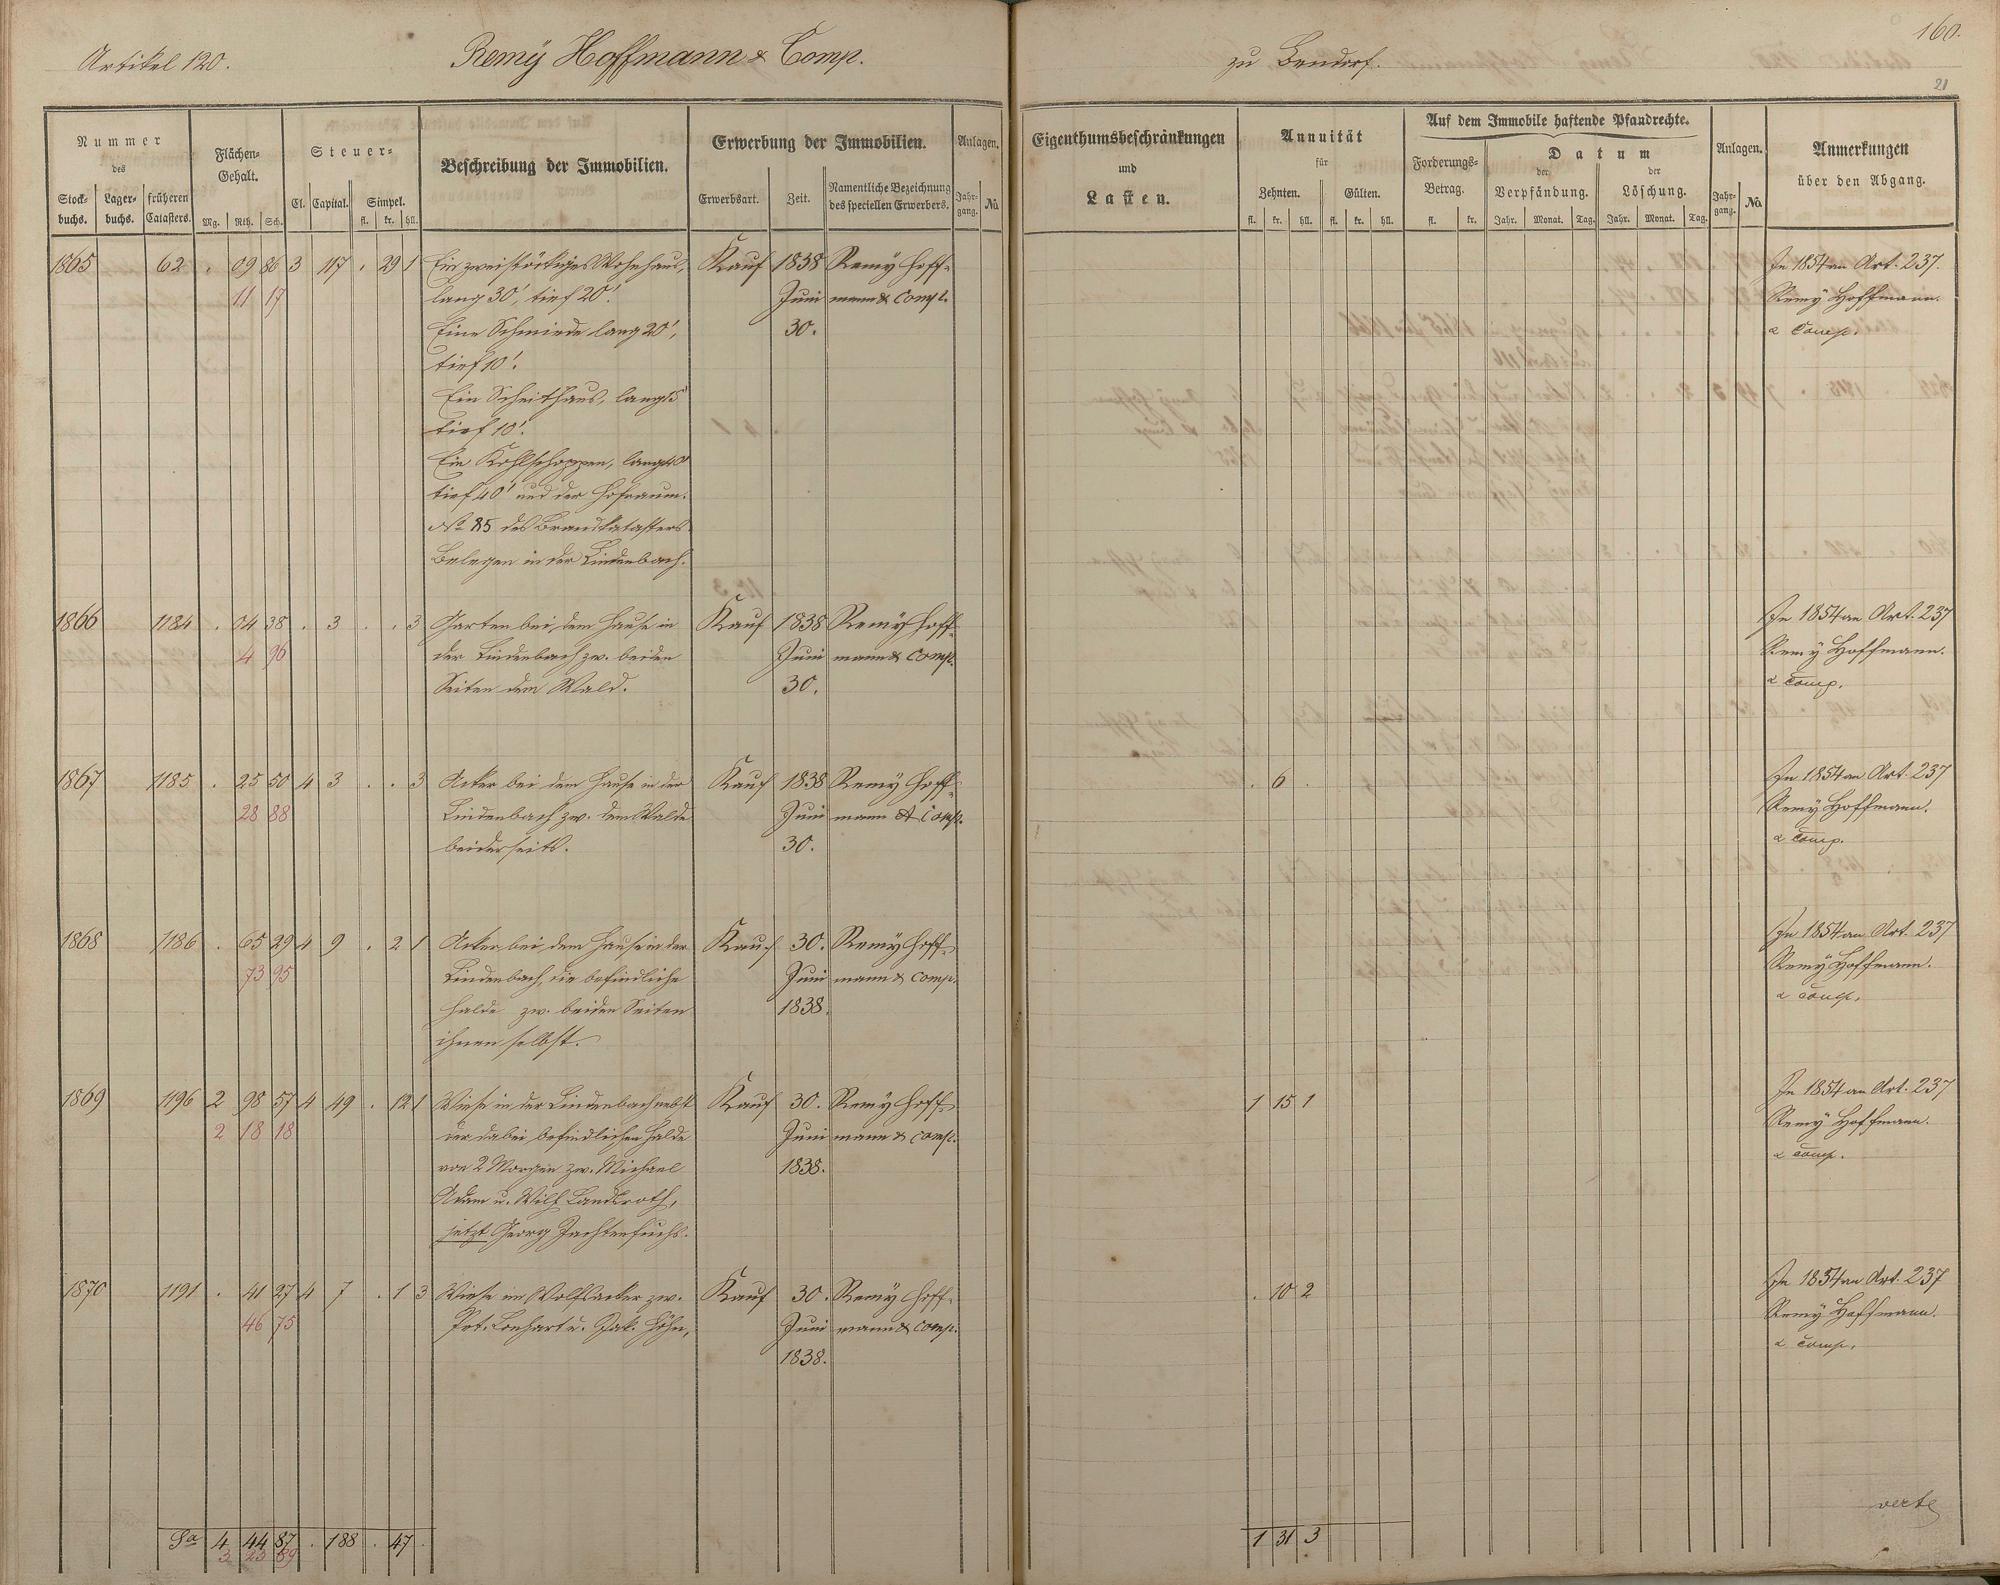 Artikel 120.
Remÿ Hoffmann & Comp.
zu Bendorf.
160.
21
Nummer
des
Stock-
buchs.
Lager-
buchs.
früheren
Catasters.
Flächen-
Gehalt.
Mg. Rth. Sch.
Steuer-
Cl. Capital. Simpel.
fl. kr. hll.
Beschreibung der Immobilien.
Erwerbung der Immobilien.
Erwerbsart. Zeit.
Namentliche Bezeichnung
des speciellen Erwerbers.
Anlagen.
Jahr-
gang. No
Eigenthumsbeschränkungen
und
Lasten.
Annuität
für
Zehnten. Gülten.
fl. kr. hll. fl. kr. hll.
Auf dem Immobile haftende Pfandrechte.
Forderungs-
Betrag.
fl. kr.
Datum
der
Verpfändung.
der
Löschung.
Jahr. Monat. Tag. Jahr. Monat. Tag.
Anlagen.
Jahr-
gang. No
Anmerkungen
über den Abgang.
1865 62 . 09 86 3 117 . 29 1 Ein zweistöckiges Wohnhaus, Kauf 1838 Remÿ Hoff-
11 17 lang 30', tief 20'. Juni mann & Comp.
Eine Schmiede lang 20', 30.
tief 10'.
Ein Scheithaus, lang 15'
tief 10'.
Ein Kohlschoppen, lang 40'
tief 40' und der Hofraum.
No 85 des Brandkatasters
Belegen in der Lindenbach.
In 1854 an Art. 237.
Remÿ Hoffmann.
& Comp.
1866 1184 . 04 38 . 3 . . 3 Garten bei dem Hause in Kauf 1838 Remÿ Hoff-
4 96 der Lindenbach zw. beiden Juni mann & Comp.
Seiten dem Wald. 30.
In 1854 an Art. 237
Remÿ Hoffmann.
& Comp.
1867 1185 . 25 50 4 3 . . 3 Acker bei dem Hause in der Kauf 1838 Remÿ Hoff-
28 88 Lindenbach zw. dem Walde Juni mann & Comp.
beiderseits. 30.
. 6 .
In 1854 an Art. 237
Remÿ Hoffmann.
& Comp.
1868 1186 . 65 29 4 9 . 2 1 Acker bei dem Hause in der Kauf 30. Remÿ Hoff-
73 95 Lindenbach, die befindliche Juni mann & Comp.
Halde zw. beiden Seiten 1838.
ihnen selbst.
In 1854 an Art. 237
Remÿ Hoffmann.
& Comp.
1869 1196 2 98 57 4 49 . 12 1 Wiese in der Lindenbach nebst Kauf 30. Remÿ Hoff-
2 18 18 der dabei befindlichen Halde Juni mann & Comp.
von 2 Morgen zw. Michael 1838.
Adam u. Wilh. Landsroth,
jetzt Georg Zachtenfuchs.
1 15 1
In 1854 an Art. 237
Remÿ Hoffmann.
& Comp.
1870 1191 . 41 27 4 7 . 1 3 Wiese im Wolfsacker zw. Kauf 30. Remÿ Hoff-
46 75 Pet. Lenhart u. Jak. Höhn, Juni mann & Comp.
1838.
. 10 2
In 1854 an Art. 237
Remÿ Hoffmann.
& Comp.
verte
Sa 4 44 87 . 188 . 47 .
3 23 89
1 31 3